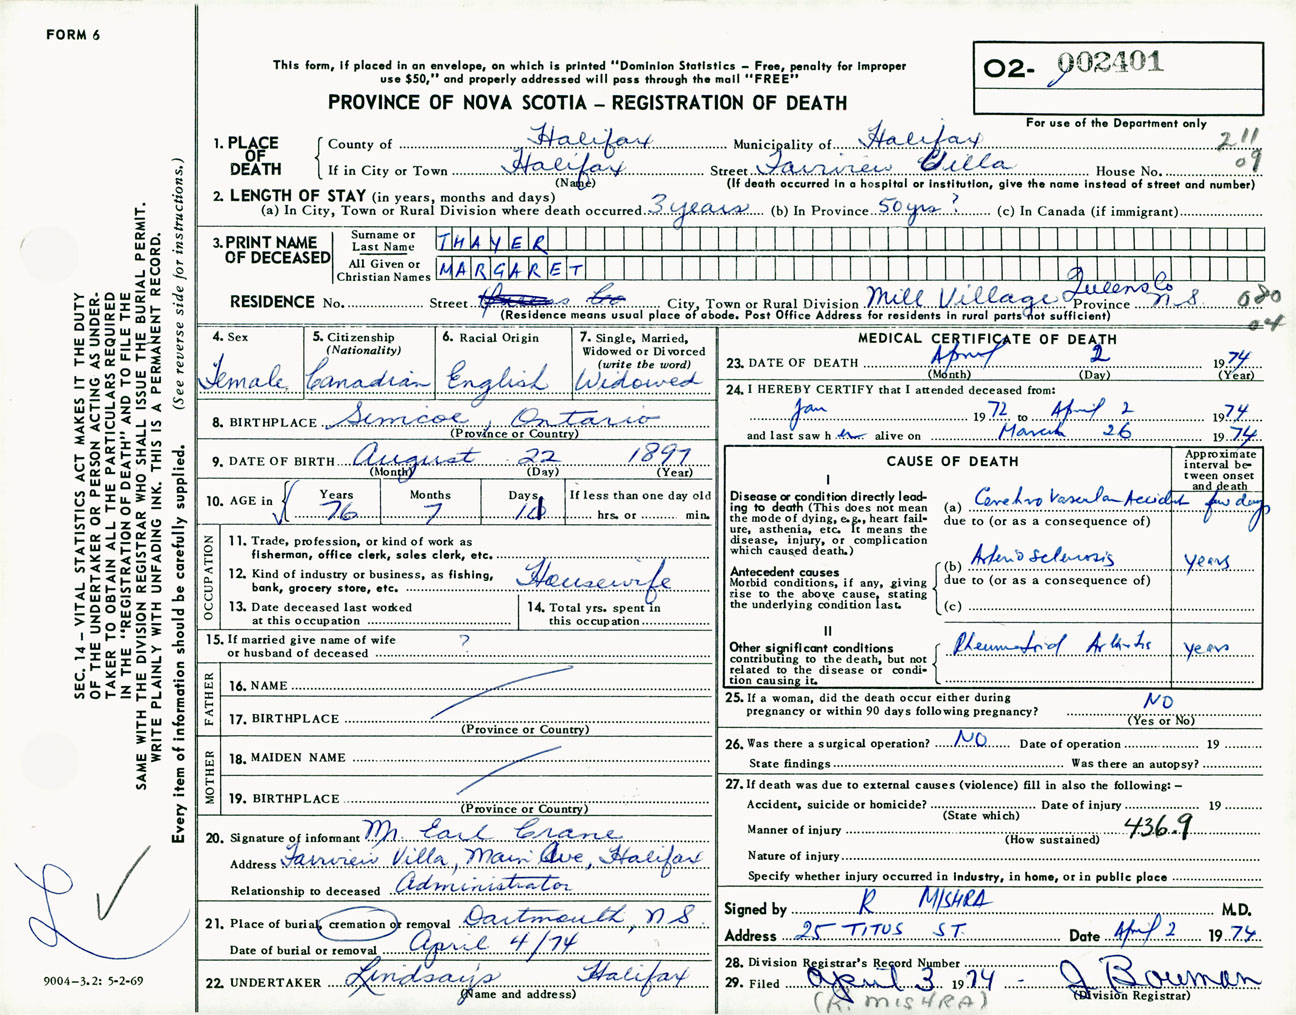 FORM 6
This form, if placed in an envelope, on which is printed "Dominion Statistics – Free, penalty for improper
use $50," and properly addressed will pass through the mail "FREE"
PROVINCE OF NOVA SCOTIA – REGISTRATION OF DEATH
O2- 002401
For use of the Department only
211
09
1. PLACE OF DEATH
County of Halifax Municipality of Halifax
If in City or Town Halifax Street Fairview Villa House No.
(Name) (If death occurred in a hospital or institution, give the name instead of street and number)
2. LENGTH OF STAY (in years, months and days)
(a) In City, Town or Rural Division where death occurred 3 years (b) In Province 50 yrs ? (c) In Canada (if immigrant)
3. PRINT NAME OF DECEASED
Surname or Last Name THAYER
All Given or Christian Names MARGARET
RESIDENCE No. Street City, Town or Rural Division Mill Village Queens Co Province N S
080
04
(Residence means usual place of abode. Post Office Address for residents in rural parts not sufficient)
4. Sex
Female
5. Citizenship
(Nationality)
Canadian
6. Racial Origin
English
7. Single, Married,
Widowed or Divorced
(write the word)
Widowed
8. BIRTHPLACE Simcoe, Ontario
(Province or Country)
9. DATE OF BIRTH August 22 1897
(Month) (Day) (Year)
10. AGE in
Years Months Days If less than one day old
76 7 hrs. or min.
OCCUPATION
11. Trade, profession, or kind of work as
fisherman, office clerk, sales clerk, etc.
12. Kind of industry or business, as fishing,
bank, grocery store, etc. Housewife
13. Date deceased last worked
at this occupation
14. Total yrs. spent in
this occupation
15. If married give name of wife
or husband of deceased ?
FATHER
16. NAME
17. BIRTHPLACE
(Province or Country)
MOTHER
18. MAIDEN NAME
19. BIRTHPLACE
(Province or Country)
20. Signature of informant Mr. Earl Crane
Address Fairview Villa, Main Ave, Halifax
Relationship to deceased Administrator
21. Place of burial, cremation or removal Dartmouth, N S.
Date of burial or removal April 4/74
22. UNDERTAKER Lindsay's Halifax
(Name and address)
MEDICAL CERTIFICATE OF DEATH
23. DATE OF DEATH April 2 1974
(Month) (Day) (Year)
24. I HEREBY CERTIFY that I attended deceased from:
Jan 1972 to April 2 1974
and last saw her alive on March 26 1974
CAUSE OF DEATH
Approximate
interval be-
tween onset
and death
I
Disease or condition directly lead-
ing to death (This does not mean
the mode of dying, e.g., heart fail-
ure, asthenia, etc. It means the
disease, injury, or complication
which caused death.)
(a) Cerebro Vascular Accident few days
due to (or as a consequence of)
Antecedent causes
Morbid conditions, if any, giving
rise to the above cause, stating
the underlying condition last.
(b) Arterio sclerosis years
due to (or as a consequence of)
(c)
II
Other significant conditions
contributing to the death, but not
related to the disease or condi-
tion causing it.
Rheumatoid Arthritis years
25. If a woman, did the death occur either during
pregnancy or within 90 days following pregnancy? NO
(Yes or No)
26. Was there a surgical operation? NO Date of operation 19
State findings Was there an autopsy?
27. If death was due to external causes (violence) fill in also the following: –
Accident, suicide or homicide? Date of injury 19
(State which)
Manner of injury 436.9
(How sustained)
Nature of injury
Specify whether injury occurred in industry, in home, or in public place
Signed by R MISHRA M.D.
Address 25 TITUS ST. Date April 2 1974
28. Division Registrar's Record Number
29. Filed April 3 1974 - J Bowman
(Division Registrar)
(R. MISHRA)
SEC. 14 – VITAL STATISTICS ACT MAKES IT THE DUTY
OF THE UNDERTAKER OR PERSON ACTING AS UNDER-
TAKER TO OBTAIN ALL THE PARTICULARS REQUIRED
IN THE "REGISTRATION OF DEATH" AND TO FILE THE
SAME WITH THE DIVISION REGISTRAR WHO SHALL ISSUE THE BURIAL PERMIT.
WRITE PLAINLY WITH UNFADING INK. THIS IS A PERMANENT RECORD.
Every item of information should be carefully supplied. (See reverse side for instructions.)
9004-3.2: 5-2-69